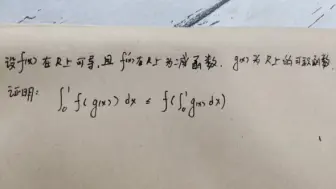 设f(x)在R上可导,且f'(x)在R上为减函数. g(x)为R上的可微函数.
证明: ∫₀¹ f(g(x)) dx ≤ f(∫₀¹ g(x) dx)